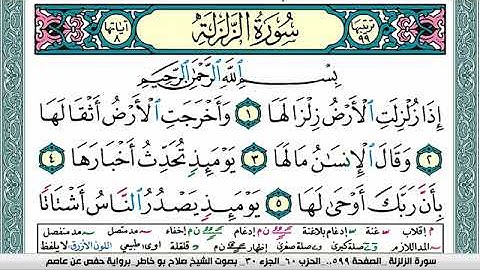 ترتيبها ٩٩ سُورَةُ الزَّلْزَلَةِ آياتها ٨
بِسْمِ اللَّهِ الرَّحْمَٰنِ الرَّحِيمِ
إِذَا زُلْزِلَتِ الْأَرْضُ زِلْزَالَهَا ١ وَأَخْرَجَتِ الْأَرْضُ أَثْقَالَهَا
٢ وَقَالَ الْإِنسَانُ مَا لَهَا ٣ يَوْمَئِذٍ تُحَدِّثُ أَخْبَارَهَا ٤
بِأَنَّ رَبَّكَ أَوْحَىٰ لَهَا ٥ يَوْمَئِذٍ يَصْدُرُ النَّاسُ أَشْتَاتًا
م إقلاب غنة إدغام بلاغنة ن م إدغام ن م إخفاء مد متصل مد منفصل
المد اللازم صلة كبرى صلة صغرى إظهار ن م قلقلة طبيعي اللون الأزرق لا يلفظ
سورة الزلزلة _الصفحة ٥٩٩.. الحزب ٦٠_الجزء ٣٠_ بصوت الشيخ صلاح بو خاطر_برواية حفص عن عاصم